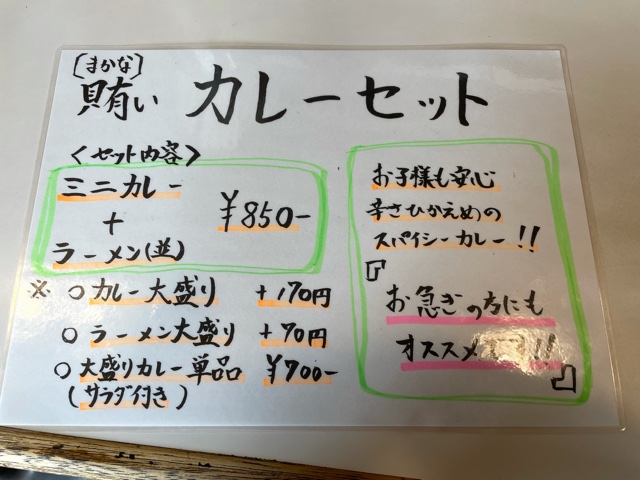 〔まかな〕
賄い カレーセット
〈セット内容〉
ミニカレー
+
ラーメン(並)
¥850-
※ ○カレー大盛り +170円
○ラーメン大盛り +70円
○大盛りカレー単品 ¥700-
(サラダ付き)
お子様も安心
辛さひかえめの
スパイシーカレー!!
『
お急ぎの方にも
オススメ!!
』